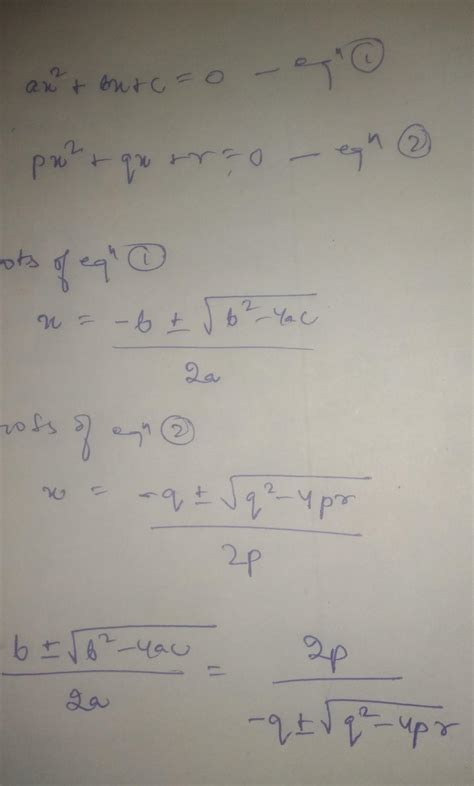 ax² + bx + c = 0 — eqⁿ ①
px² + qx + r = 0 — eqⁿ ②
ots of eqⁿ ①
x = -b ± √b² - 4ac / 2a
roots of eqⁿ ②
x = -q ± √q² - 4pr / 2p
b ± √b² - 4ac / 2a = 2p / -q ± √q² - 4pr